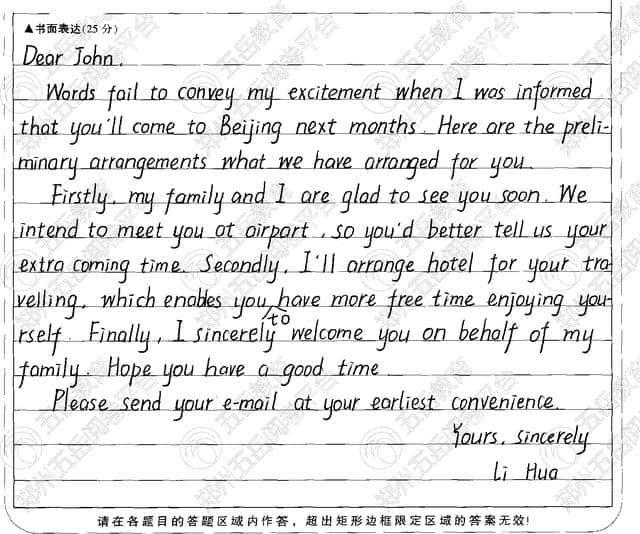 ▲书面表达(25分)
Dear John,
Words fail to convey my excitement when I was informed
that you'll come to Beijing next months. Here are the preli-
minary arrangements what we have arranged for you.
Firstly, my family and I are glad to see you soon. We
intend to meet you at airpart, so you'd better tell us your
extra coming time. Secondly, I'll arrange hotel for your tra
velling, which enables you to have more free time enjoying you-
rself. Finally, I sincerely welcome you on behalf of my
family. Hope you have a good time
Please send your e-mail at your earliest convenience.
Yours, sincerely
Li Hua
请在各题目的答题区域内作答，超出矩形边框限定区域的答案无效!
郑州五岳教育
五岳阅卷平台